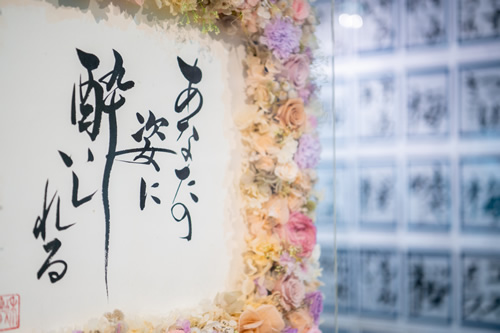 あなたの
姿に
酔いしれる